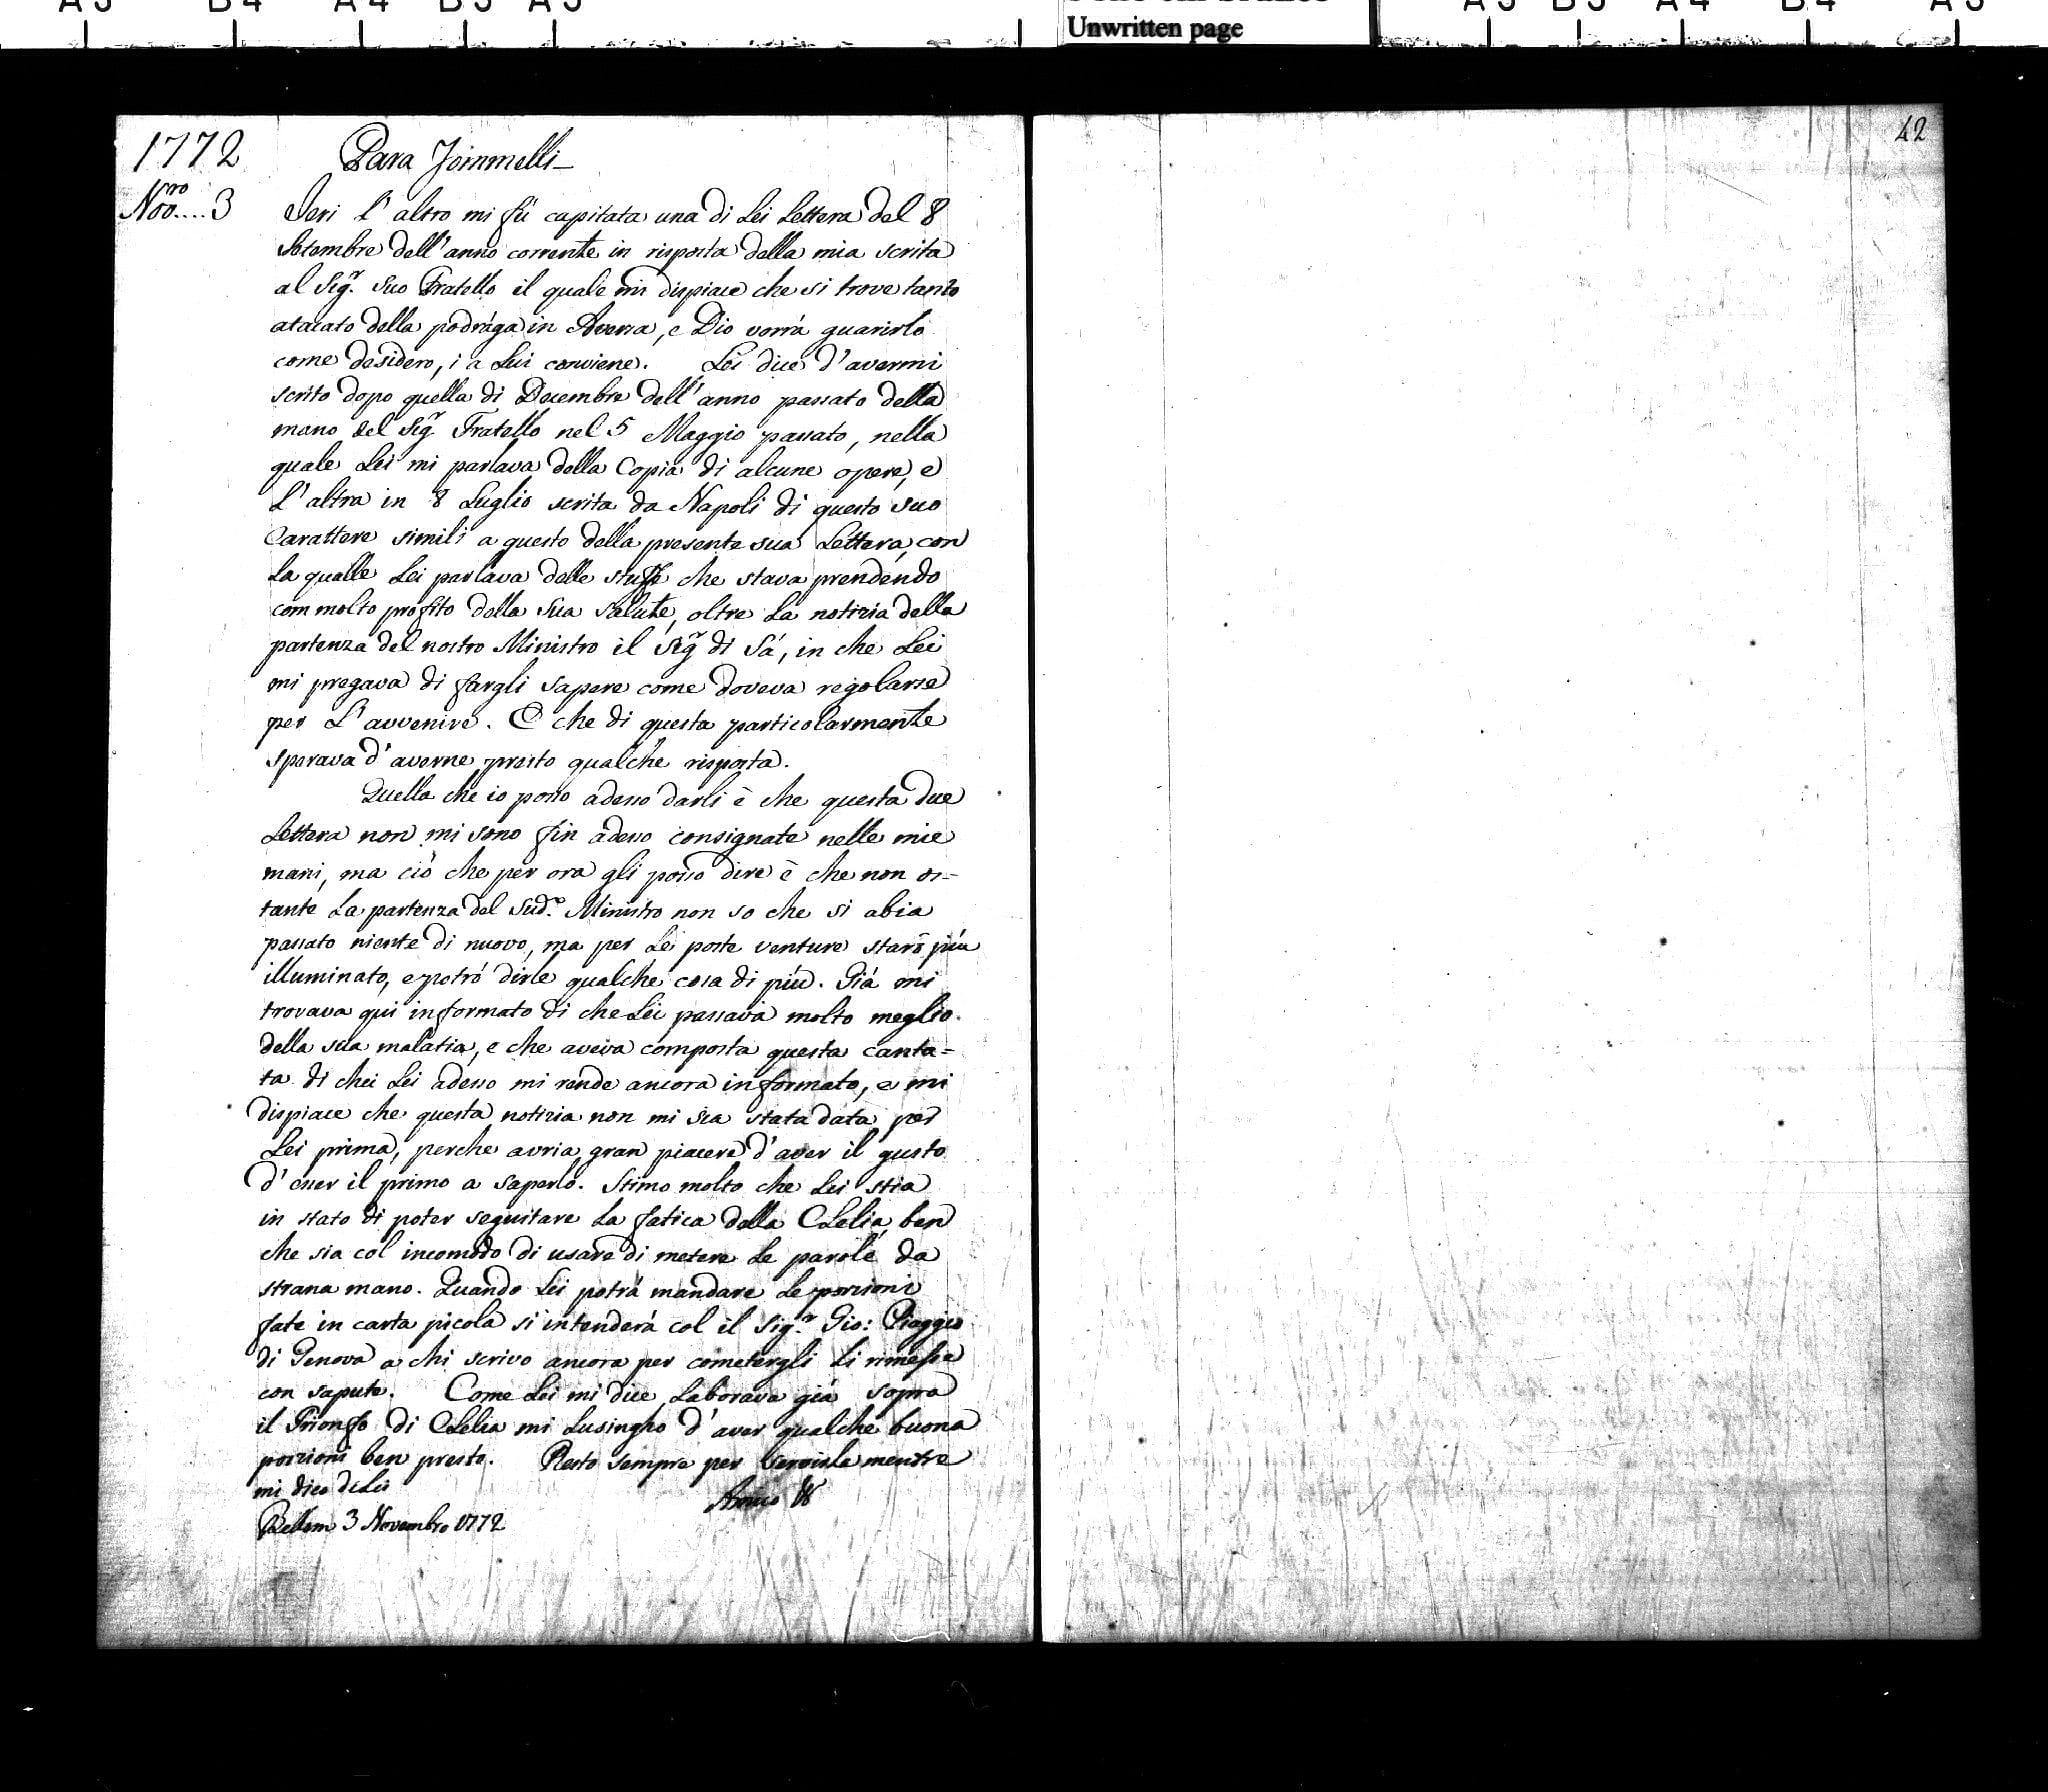 A3 B4 A4 B5 A5
Unwritten page
A5 B5 A4 B4 A3
42
1772 Para Jommelli
Nov.ro....3 Ieri l'altro mi fù capitata una di Lei Lettera del 8
Setembre dell'anno corrente in risposta della mia scrita
al Sig.r Suo Fratello il quale mi dispiace che si trove tanto
atacato della podrága in Aversa, e Dio vorrà guarirlo
come desidero, i a Lui conviene. Lei dice d'avermi
scrito dopo quella di Decembre dell'anno passato della
mano del Sig.r Fratello nel 5 Maggio passato, nella
quale Lei mi parlava della Copia di alcune opere, e
l'altra in 8 Luglio scrita da Napoli di questo suo
Carattere simili a questo della presente sua Lettera, con
la qualle Lei parlava delle stuffe che stava prendendo
com molto profito della Sua Salute, oltre la notizia della
partenza del nostro Ministro il Sig.r di Sá, in che Lei
mi pregava di fargli sapere come doveva regolarse
per l'avvenire. E che di questa particolarmente
sperava d'averne presto qualche risposta.
Quella che io posso adesso darli è che questa due
Lettera non mi sono fin adesso consignate nelle mie
mani, ma ciò che per ora gli posso dire è che non os-
tante la partenza del Sud.o Ministro non so che si abia
passato niente di nuovo, ma per le poste venture starò più
illuminato, e potrò dirle qualche cosa di più. Già mi
trovava qui informato di che Lei passava molto meglio
della sua malatia, e che aveva composta questa canta=
ta di chei Lei adesso mi rende ancora informato, e mi
dispiace che questa notizia non mi sia stata data per
Lei prima, perche avria gran piacere d'aver il gusto
d'esser il primo a saperlo. Stimo molto che Lei stia
in stato di poter seguitare la fatica della Clelia, ben
che sia col incomodo di usare di metere le parole da
strana mano. Quando Lei potrá mandare le porzioni
fate in carta picola si intenderá col il Sig.r Gio: Piaggio
di Genova a chi scrivo ancora per cometergli li rimesse
con sapute. Come Lei mi dice laborava giá sopra
il Trionfo di Clelia mi lusingho d'aver qualche buona
porzioni ben presto. Resto sempre per servirla mentre
mi dico di Lei
Amico
Bellem 3 Novembro 1772